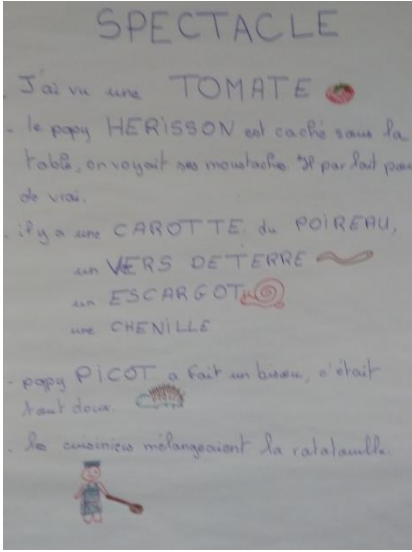 SPECTACLE
. J'ai vu une TOMATE
- le papy HERISSON est caché sous la
table, on voyait ses moustaches. Il parlait pour
de vrai.
. il y a une CAROTTE. du POIREAU,
un VERS DE TERRE
un ESCARGOT
une CHENILLE
- papy PICOT a fait un bisou, c'était
tout doux.
. les cuisiniers mélangeaient la ratatouille.